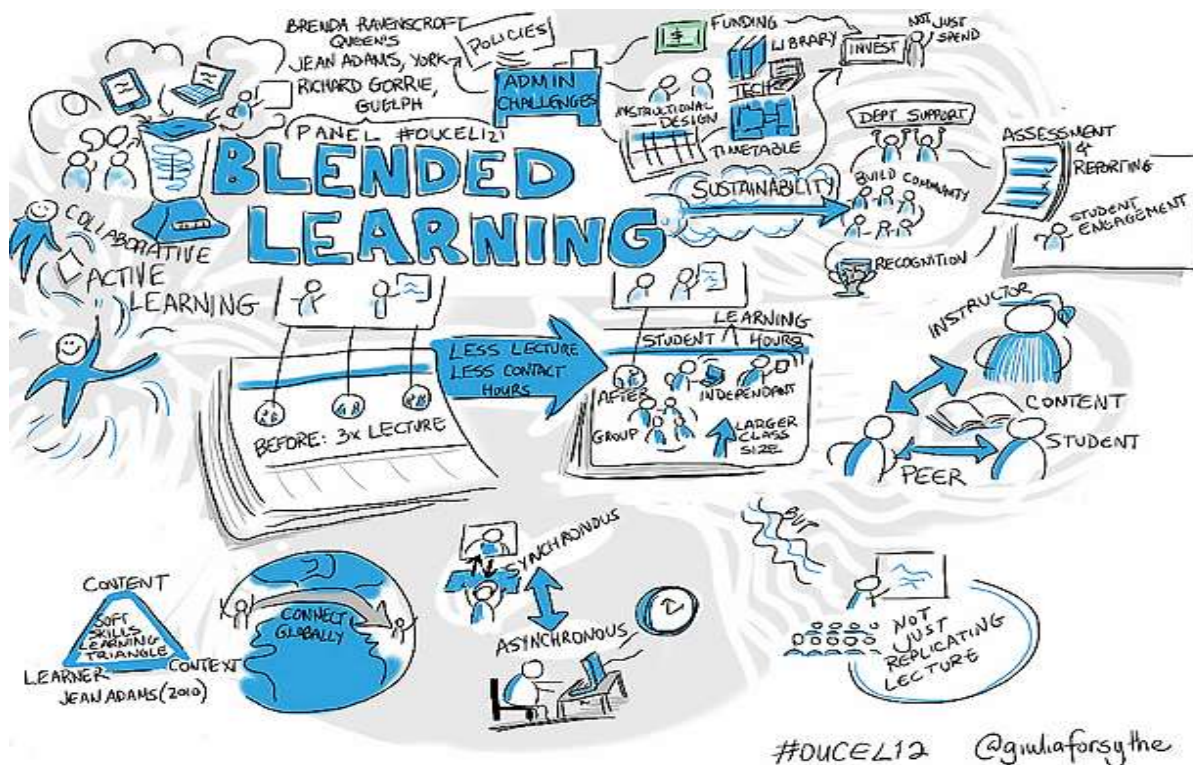 BRENDA RAVENSCROFT
QUEEN'S
JEAN ADAMS, YORK
RICHARD GORRIE,
GUELPH
PANEL #OUCEL12
POLICIES
ADMIN
CHALLENGES
FUNDING
LIBRARY
TECH
INSTRUCTIONAL
DESIGN
TIMETABLE
INVEST
NOT JUST
SPEND
BLENDED
LEARNING
SUSTAINABILITY
DEPT SUPPORT
BUILD COMMUNITY
RECOGNITION
ASSESSMENT
&
REPORTING
STUDENT
ENGAGEMENT
COLLABORATIVE
ACTIVE
LEARNING
BEFORE: 3x LECTURE
LESS LECTURE
LESS CONTACT
HOURS
LEARNING
STUDENT HOURS
AFTER
INDEPENDANT
GROUP
LARGER
CLASS
SIZE
INSTRUCTOR
CONTENT
STUDENT
PEER
CONTENT
SOFT
SKILLS
LEARNING
TRIANGLE
LEARNER
CONTEXT
JEAN ADAMS (2010)
CONNECT
GLOBALLY
SYNCHRONOUS
ASYNCHRONOUS
BUT
NOT
JUST
REPLICATING
LECTURE
#OUCEL12 @giuliaforsythe